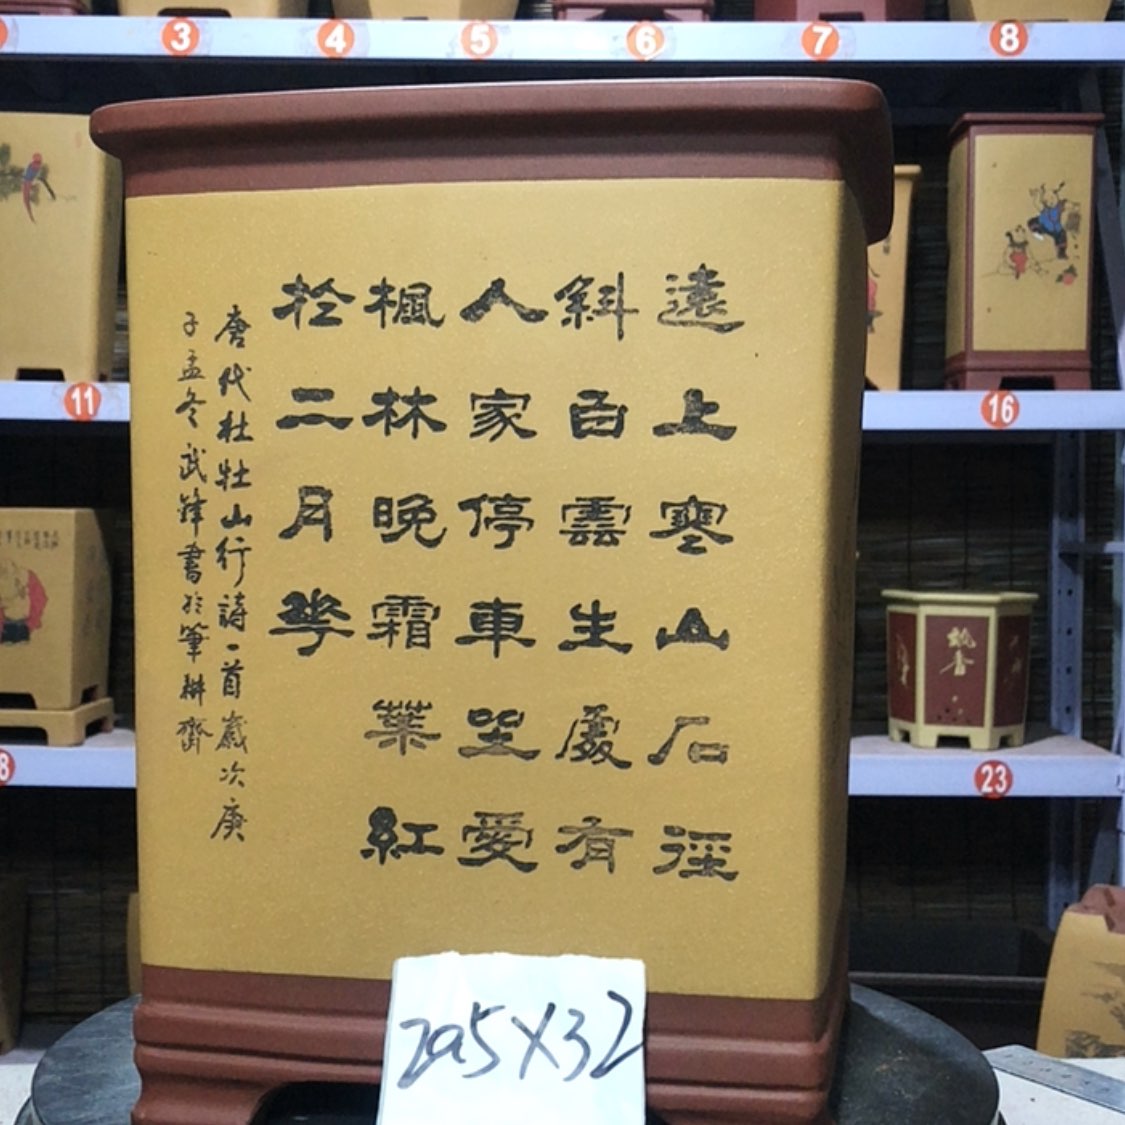 3
4
5
6
7
8
遠上寒山石徑
斜白雲生處有
人家停車坐愛
楓林晚霜葉紅
扵二月花
唐代杜牡山行詩一首歲次庚
子孟冬武鋒書於筆耕齋
11
16
23
29.5X32